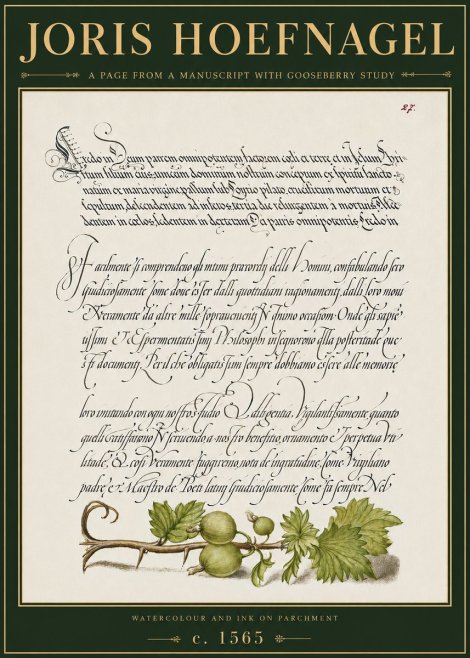 JORIS HOEFNAGEL
A PAGE FROM A MANUSCRIPT WITH GOOSEBERRY STUDY
27.
Credo in Deum patrem omnipotentem factorem celi et terre, et in Iesum Chri-
stum filium eius unicum dominum nostrum conceptum ex spiritu sancto
natum ex maria virgine passum sub pilato, crucifixum mortuum et
sepultum descendentem ad inferos, tertia die resurgentem a mortuis
dentem in celos sedentem in dexteram Dei patris omnipotentis Credo in
Facilmente si comprendeno gli intimi precordij delli Homini, confabulando seco
Giudiciosamente Come dalli quotidiani ragionamenti, dalli loro
Veramente da altre mille occasioni. Onde gli sapie
tissimi & Esperimentatissimi Philosophi insegnorono alla posteritade que
sti documenti. Per il che obligatissimi sempre dobbiamo essere alle memorie
loro imitando con ogni nostro studio & diligentia. Vigilantissimente quanto
quelli scrivendo a nostro benefitio, ornamento & perpetua Vti
litade, & cosi Veramente fuggiremo nota de ingratitudine. Come Virgiliano
padre & Maestro de Poeti latini Giudiciosamente Come fa sempre Nel
WATERCOLOUR AND INK ON PARCHMENT
c. 1565